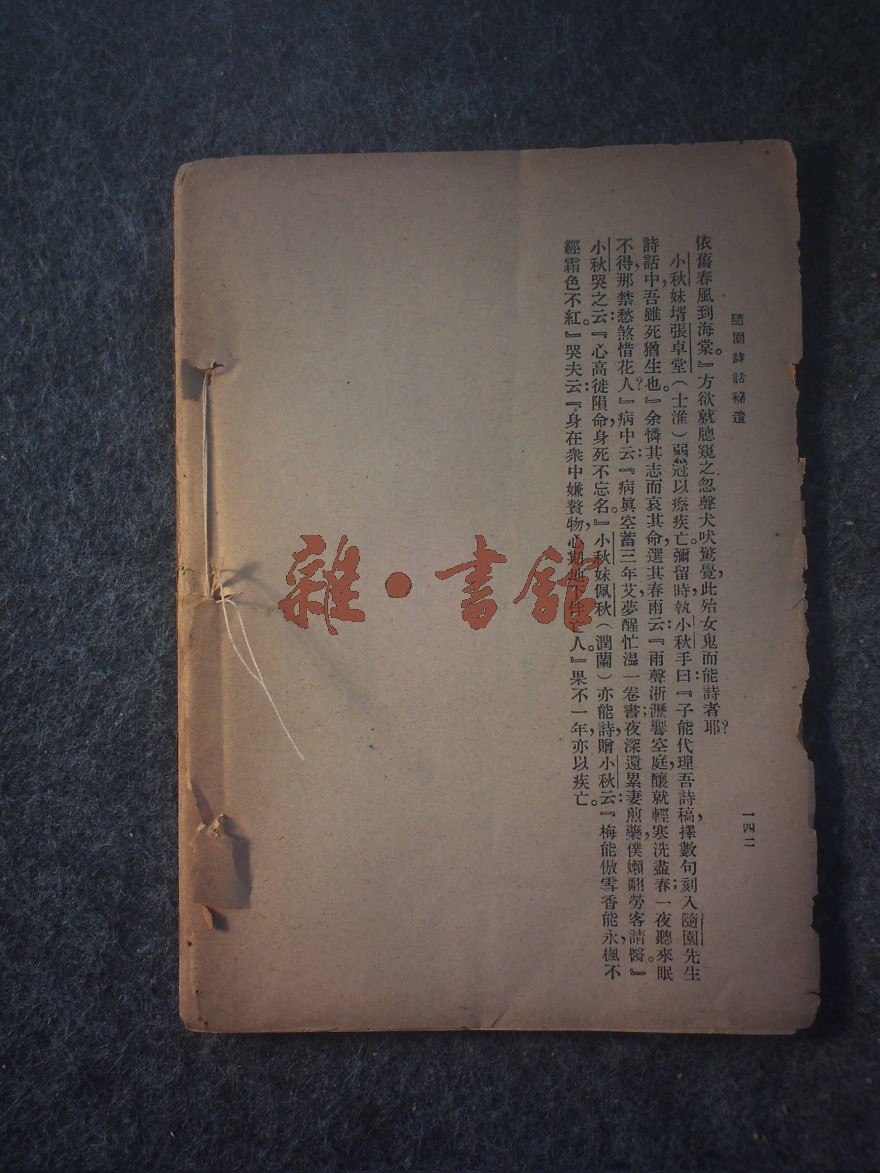 隨園詩話補遺
依舊春風到海棠。』方欲就牕窺之忽聲犬吠驚覺，此殆女鬼而能詩者耶？
小秋妹壻張卓堂（士淮）弱冠以瘵疾亡。彌留時，執小秋手曰：『子能代理吾詩稿，擇數句刻入隨園先生
詩話中，吾雖死猶生也。』余憐其志而哀其命，選其春雨云：『雨聲淅瀝響空庭，釀就輕寒洗盡春一夜聽來眠
不得，那禁愁煞惜花人？』病中云：『病眞空蓄三年艾，夢醒忙溫一卷書；夜深還累妻煎藥，僕嬾翻勞客請醫。』
小秋哭之云：『心高徒隕命，身死不忘名。』小秋妹佩秋（潤蘭）亦能詩，贈小秋云：『梅能傲雪香能永，楓不
經霜色不紅。』哭夫云：『身在衆中嫌贅物，心期地下伴亡人。』果不一年，亦以疾亡。
一四二
雜·書館